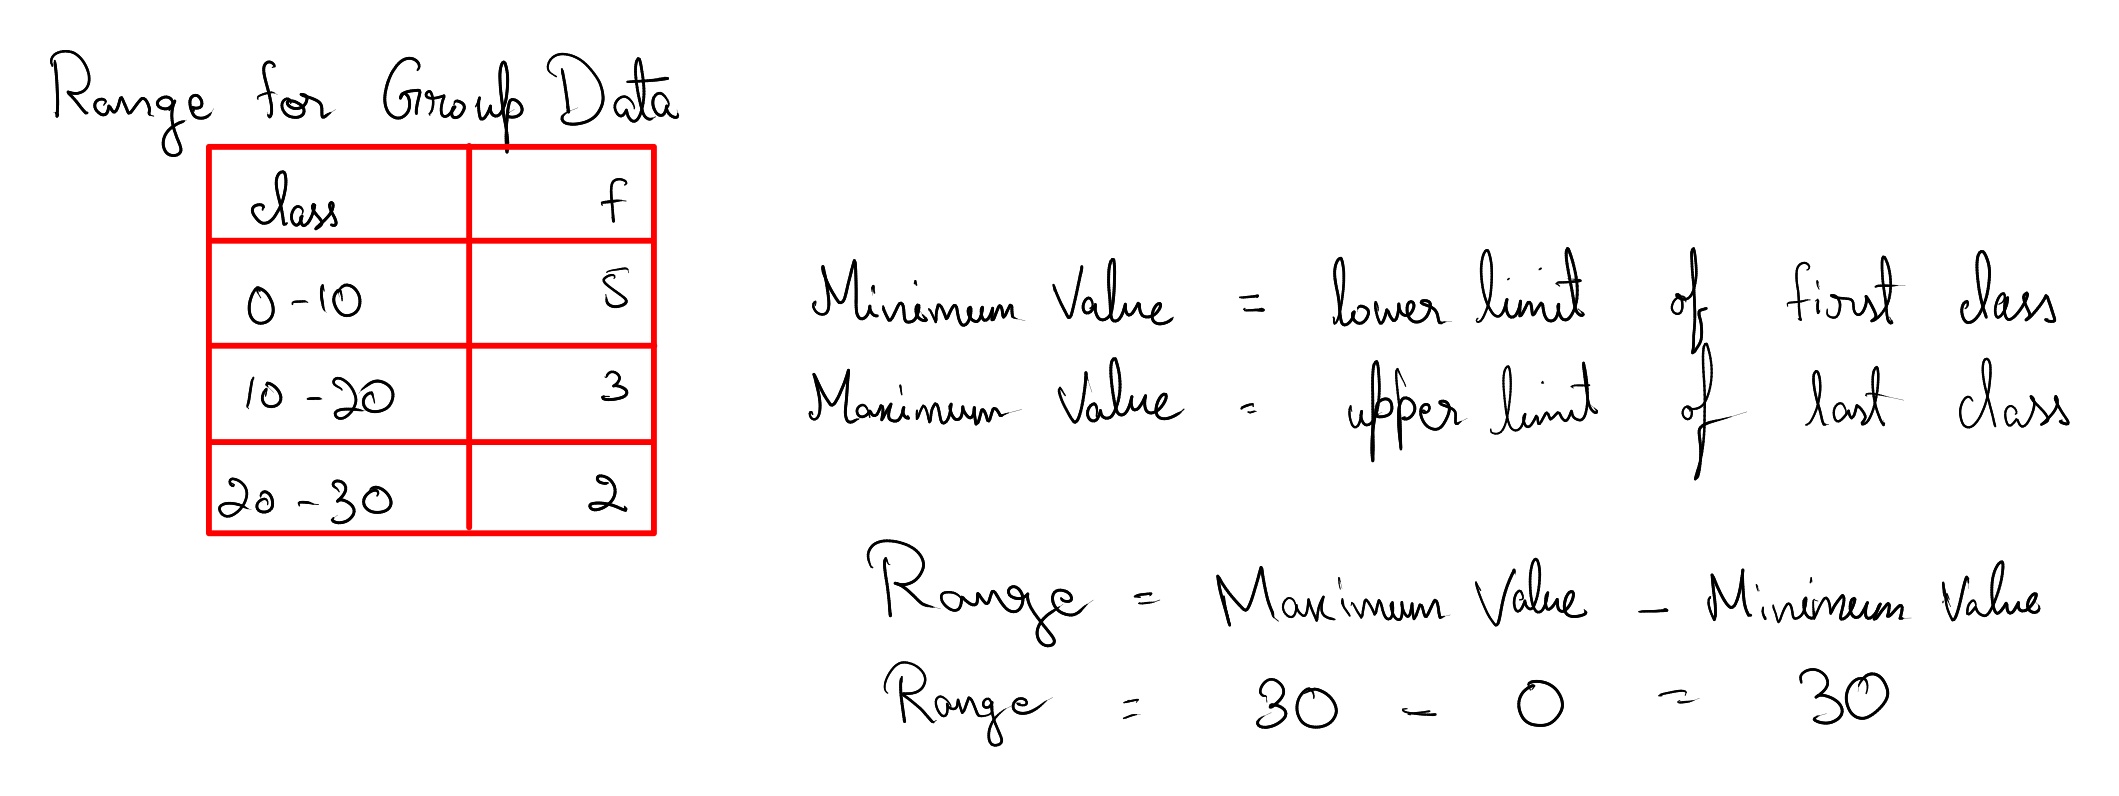 Range for Group Data
class f
0-10 5
10-20 3
20-30 2
Minimum Value = lower limit of first class
Maximum Value = upper limit of last class
Range = Maximum Value - Minimum Value
Range = 30 - 0 = 30